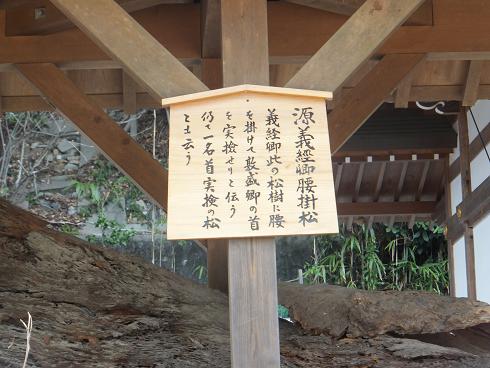 源義經卿腰掛松
義経卿此の松樹に腰
を掛けて敦盛卿の首
を実撿せりと伝う
仍て一名首実撿の松
とも云う